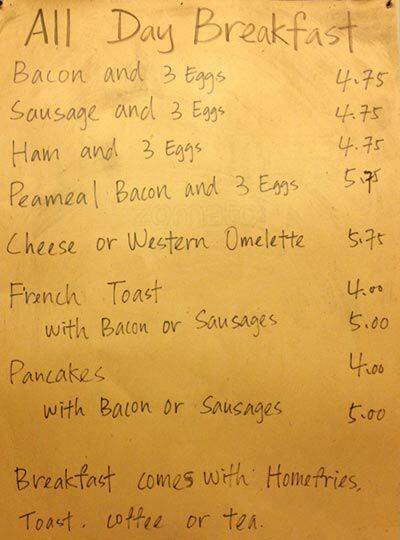 All Day Breakfast
Bacon and 3 Eggs 4.75
Sausage and 3 Eggs 4.75
Ham and 3 Eggs 4.75
Peameal Bacon and 3 Eggs 5.75
Cheese or Western Omelette 5.75
French Toast 4.00
with Bacon or Sausages 5.00
Pancakes 4.00
with Bacon or Sausages 5.00
Breakfast comes with Homefries,
Toast. coffee or tea.